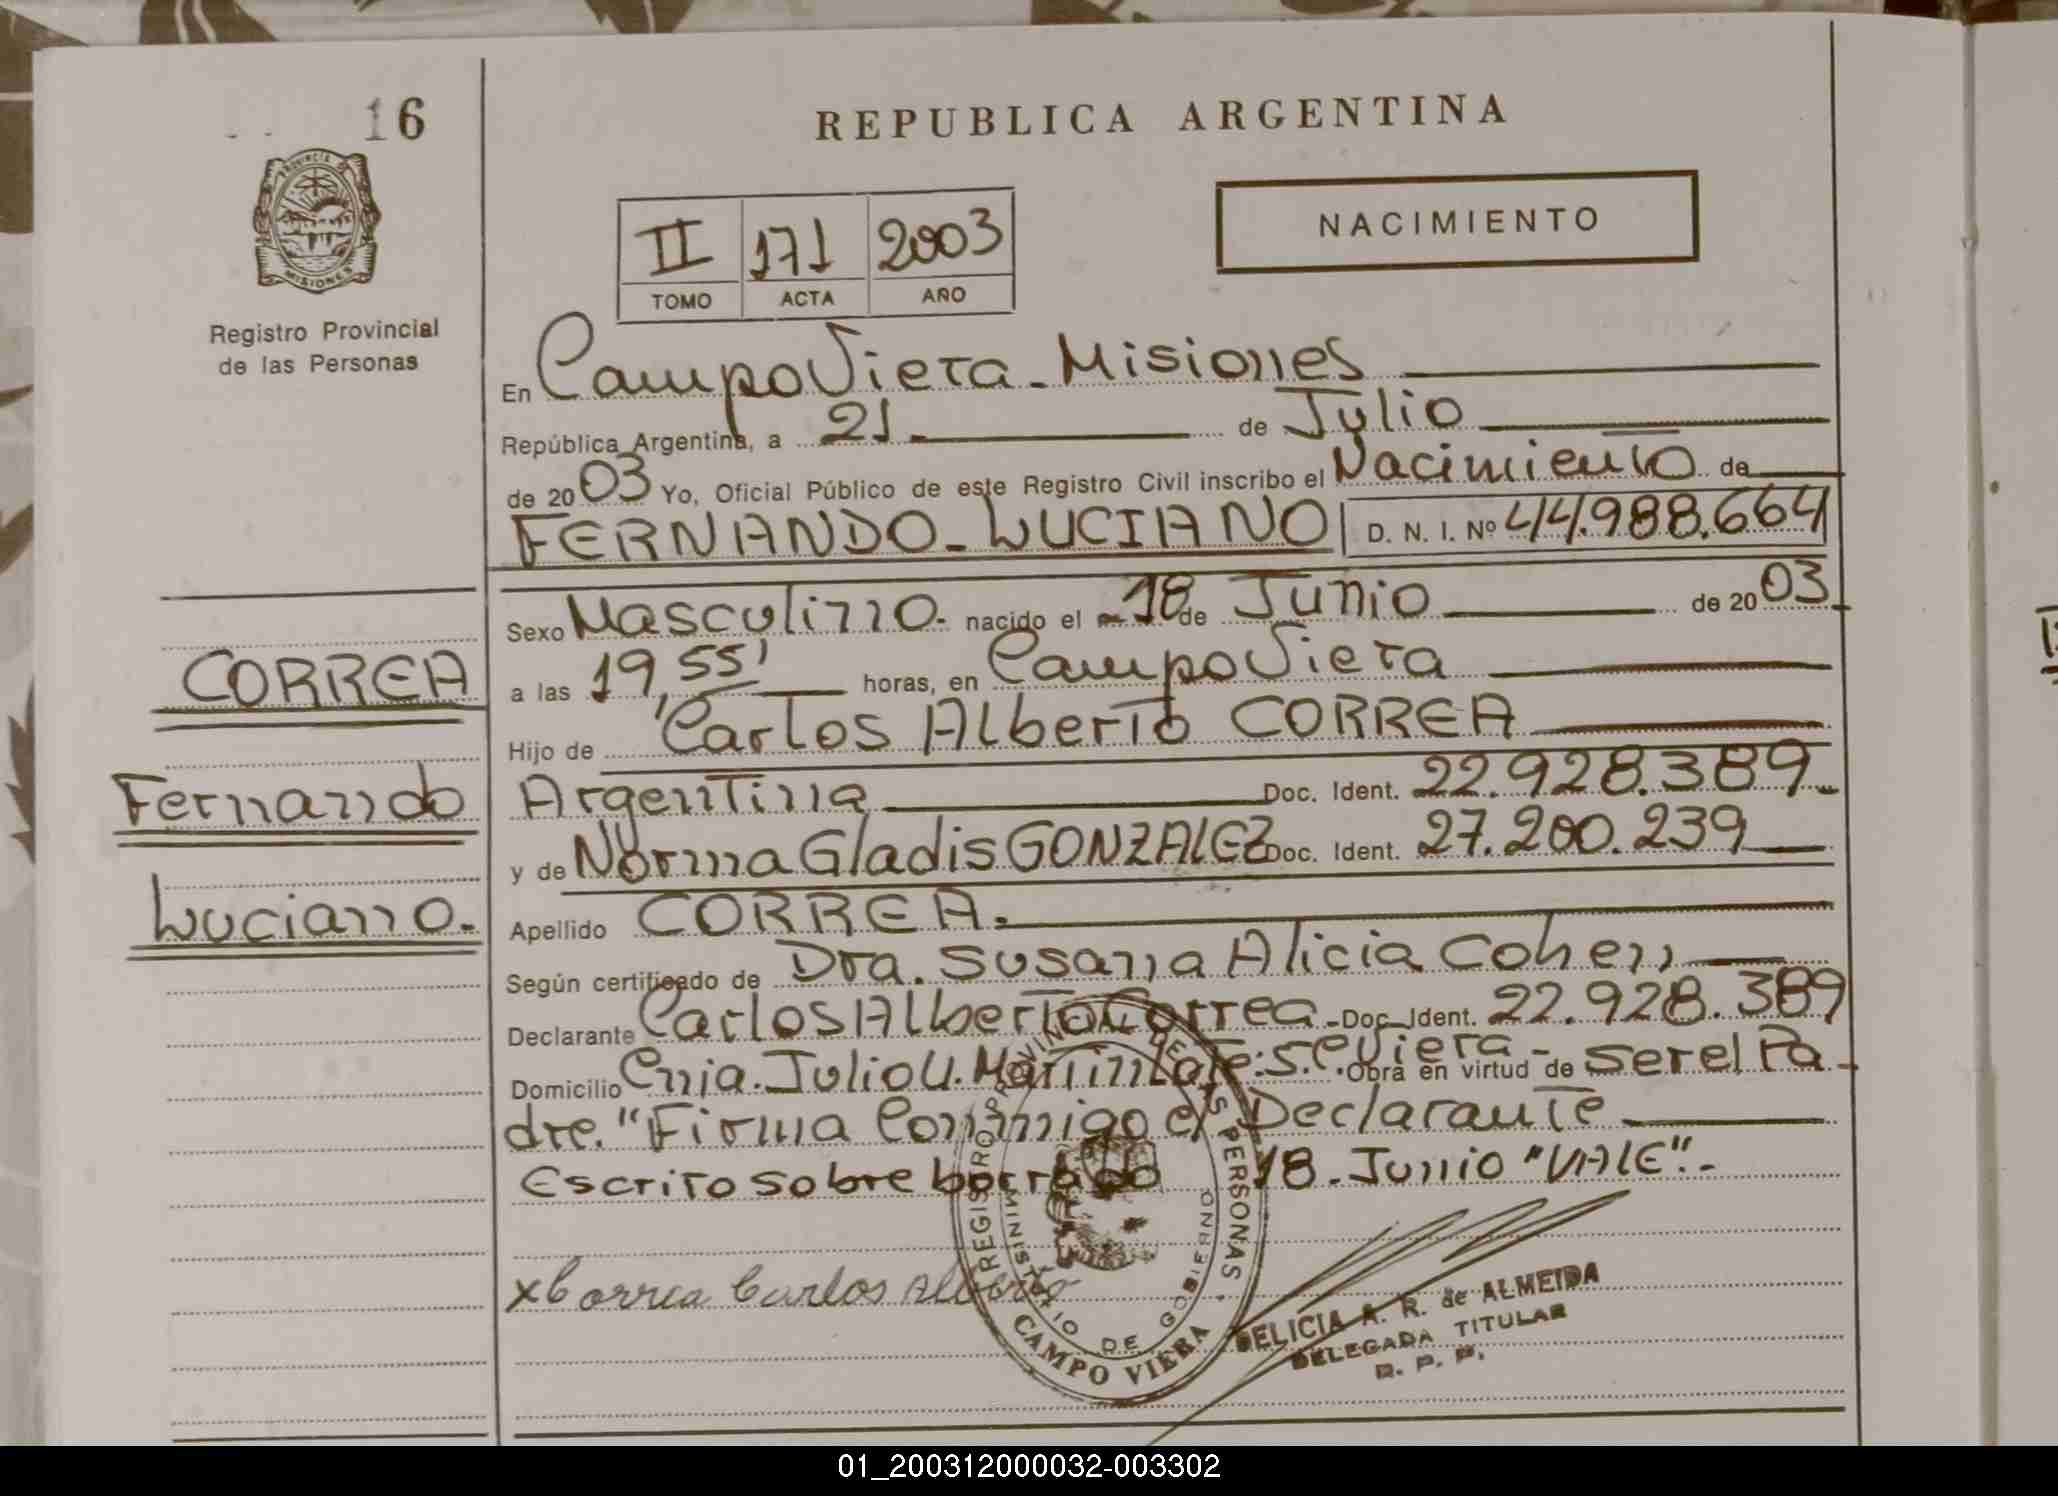 16
REPUBLICA ARGENTINA
PROVINCIA DE
MISIONES
NACIMIENTO
II 171 2003
TOMO ACTA AÑO
Registro Provincial
de las Personas
En Campo Viera - Misiones
República Argentina, a 21 de Julio
de 2003 Yo, Oficial Público de este Registro Civil inscribo el Nacimiento de
FERNANDO - LUCIANO D. N. I. Nº 44.988.664
Sexo Masculino. nacido el 18 de Junio de 2003
a las 19,55' horas, en Campo Viera
CORREA
Hijo de Carlos Alberto CORREA
Fernando
Argentina Doc. Ident. 22.928.389
y de Norma Gladis GONZALEZ Doc. Ident. 27.200.239
Luciano.
Apellido CORREA.
Según certificado de Dra. Susana Alicia Cohen
Declarante Carlos Alberto Correa Doc. Ident. 22.928.389
Domicilio Cnia. Julio U. Martin Lote: S. C. Viera - Obra en virtud de ser el Pa-
dre. "Firma Conmigo el Declarante
Escrito sobre borrado 18. Junio "VALE".-
x Correa Carlos Alberto
REGISTRO PROVINCIAL DE LAS PERSONAS
MINISTERIO DE GOBIERNO
CAMPO VIERA
DELICIA A. R. de ALMEIDA
DELEGADA TITULAR
R. P. P.
01_200312000032-003302